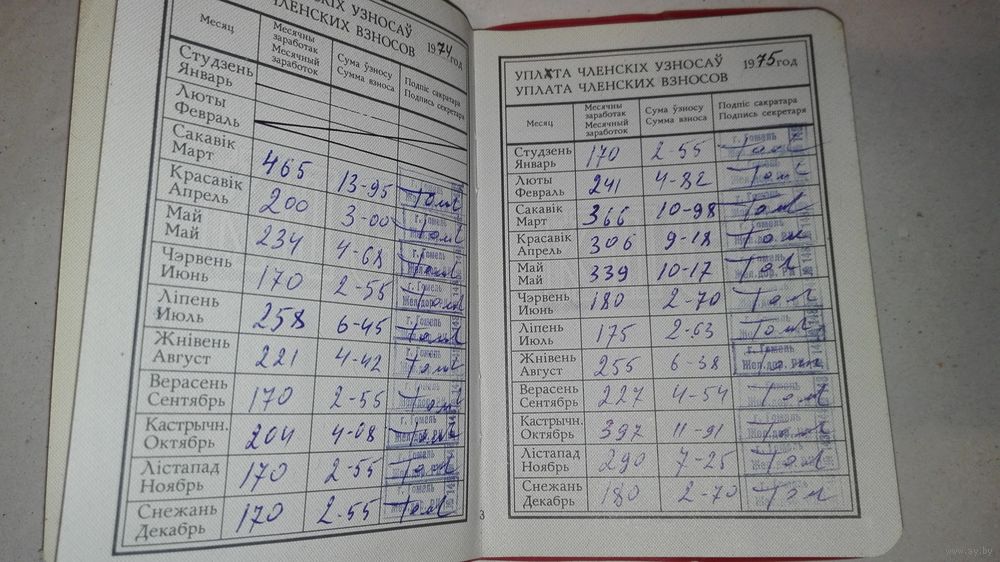 ЧЛЕНСКІХ УЗНОСАЎ
ЧЛЕНСКИХ ВЗНОСОВ 1974 год
Месяц
Месячны заработак
Месячный заработок
Сума ўзносу
Сумма взноса
Подпіс сакратара
Подпись секретаря
Студзень
Январь
Люты
Февраль
Сакавік
Март 465 13-95
Красавік
Апрель 200 3-00
Май
Май 234 4-68
Чэрвень
Июнь 170 2-55
Ліпень
Июль 258 6-45
Жнівень
Август 221 4-42
Верасень
Сентябрь 170 2-55
Кастрычн.
Октябрь 204 4-08
Лістапад
Ноябрь 170 2-55
Снежань
Декабрь 170 2-55
3
УПЛАТА ЧЛЕНСКІХ УЗНОСАЎ
УПЛАТА ЧЛЕНСКИХ ВЗНОСОВ
1975 год
Месяц
Месячны заработак
Месячный заработок
Сума ўзносу
Сумма взноса
Подпіс сакратара
Подпись секретаря
Студзень
Январь 170 2-55
Люты
Февраль 241 4-82
Сакавік
Март 366 10-98
Красавік
Апрель 306 9-18
Май
Май 339 10-17
Чэрвень
Июнь 180 2-70
Ліпень
Июль 175 2-63
Жнівень
Август 255 6-38
г. Гомель
Верасень
Сентябрь 227 4-54
Кастрычн.
Октябрь 397 11-91
Лістапад
Ноябрь 290 7-25
Снежань
Декабрь 180 2-70
www.ay.by